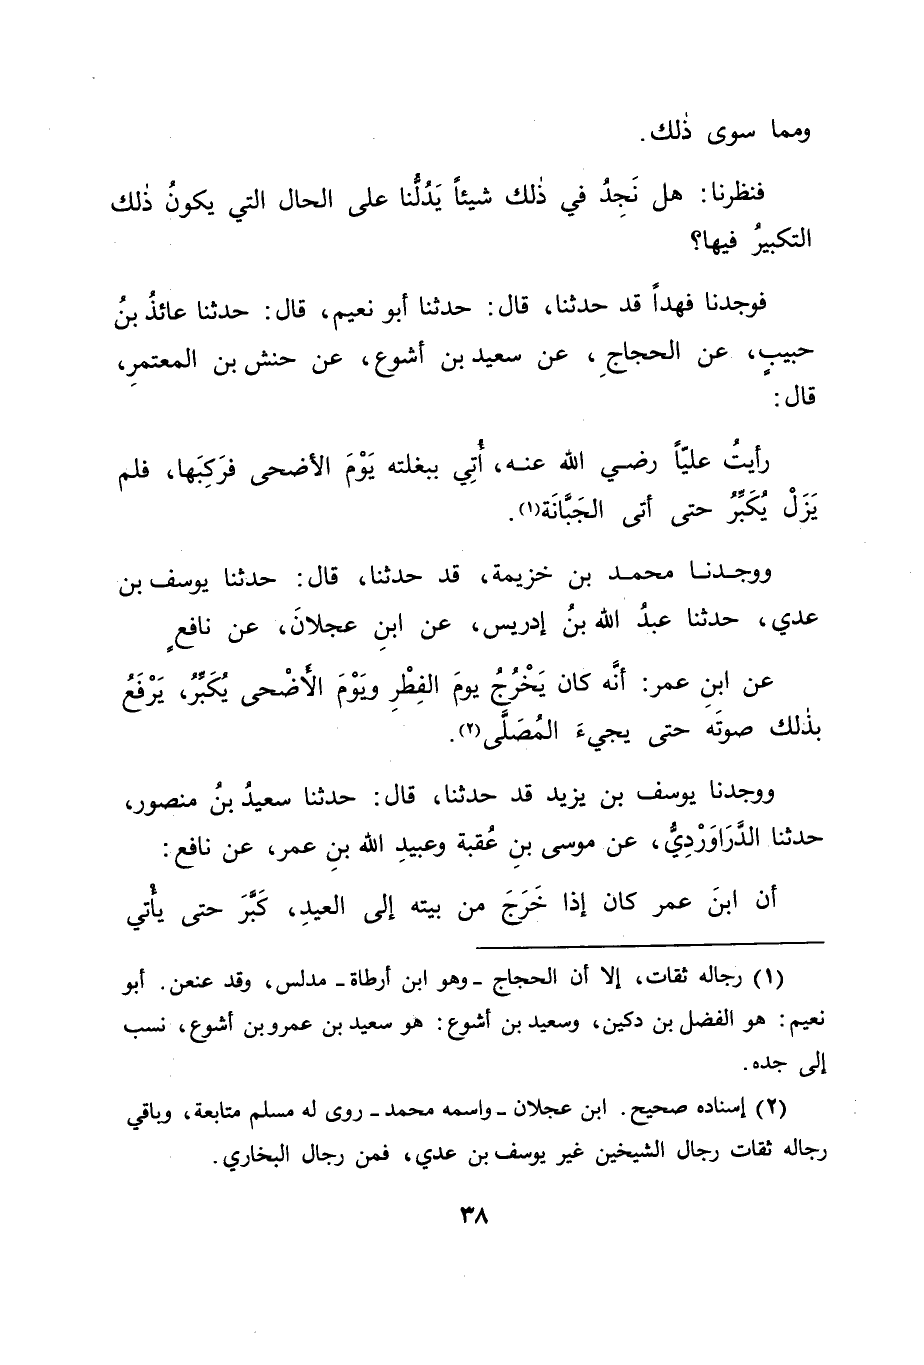 ومما سوى ذٰلك.
فنظرنا: هل نَجِدُ في ذٰلك شيئاً يَدُلُّنا على الحال التي يكونُ ذٰلك
التكبيرُ فيها؟
فوجدنا فهداً قد حدثنا، قال: حدثنا أبو نعيم، قال: حدثنا عائذُ بنُ
حبيبٍ، عن الحجاجِ، عن سعيد بن أشوع، عن حنش بن المعتمرِ،
قال:
رأيتُ عليّاً رضي الله عنه، أُتِي ببغلته يَوْمَ الأضحى فرَكِبَها، فلم
يَزَلْ يُكَبِّرُ حتى أتى الجَبَّانَة(١).
ووجدنا محمد بن خزيمة، قد حدثنا، قال: حدثنا يوسف بن
عدي، حدثنا عبدُ الله بنُ إدريس، عن ابنِ عجلانَ، عن نافعٍ
عن ابنِ عمر: أنَّه كان يَخْرُجُ يومَ الفِطْرِ ويَوْمَ الأَضْحى يُكَبِّرُ، يَرْفَعُ
بذٰلك صوتَه حتى يجيءَ المُصَلَّى(٢).
ووجدنا يوسف بن يزيد قد حدثنا، قال: حدثنا سعيدُ بنُ منصور،
حدثنا الدَّرَاوَرْدِيُّ، عن موسى بنِ عُقبة وعبيدِ الله بنِ عمر، عن نافع:
أن ابنَ عمر كان إذا خَرَجَ من بيته إلى العيدِ، كَبَّرَ حتى يأْتي
(١) رجاله ثقات، إلا أن الحجاج ـ وهو ابن أرطاة ـ مدلس، وقد عنعن. أبو
نعيم: هو الفضل بن دكين، وسعيد بن أشوع: هو سعيد بن عمرو بن أشوع، نسب
إلى جده.
(٢) إسناده صحيح. ابن عجلان ـ واسمه محمد ـ روى له مسلم متابعة، وباقي
رجاله ثقات رجال الشيخين غير يوسف بن عدي، فمن رجال البخاري.
٣٨